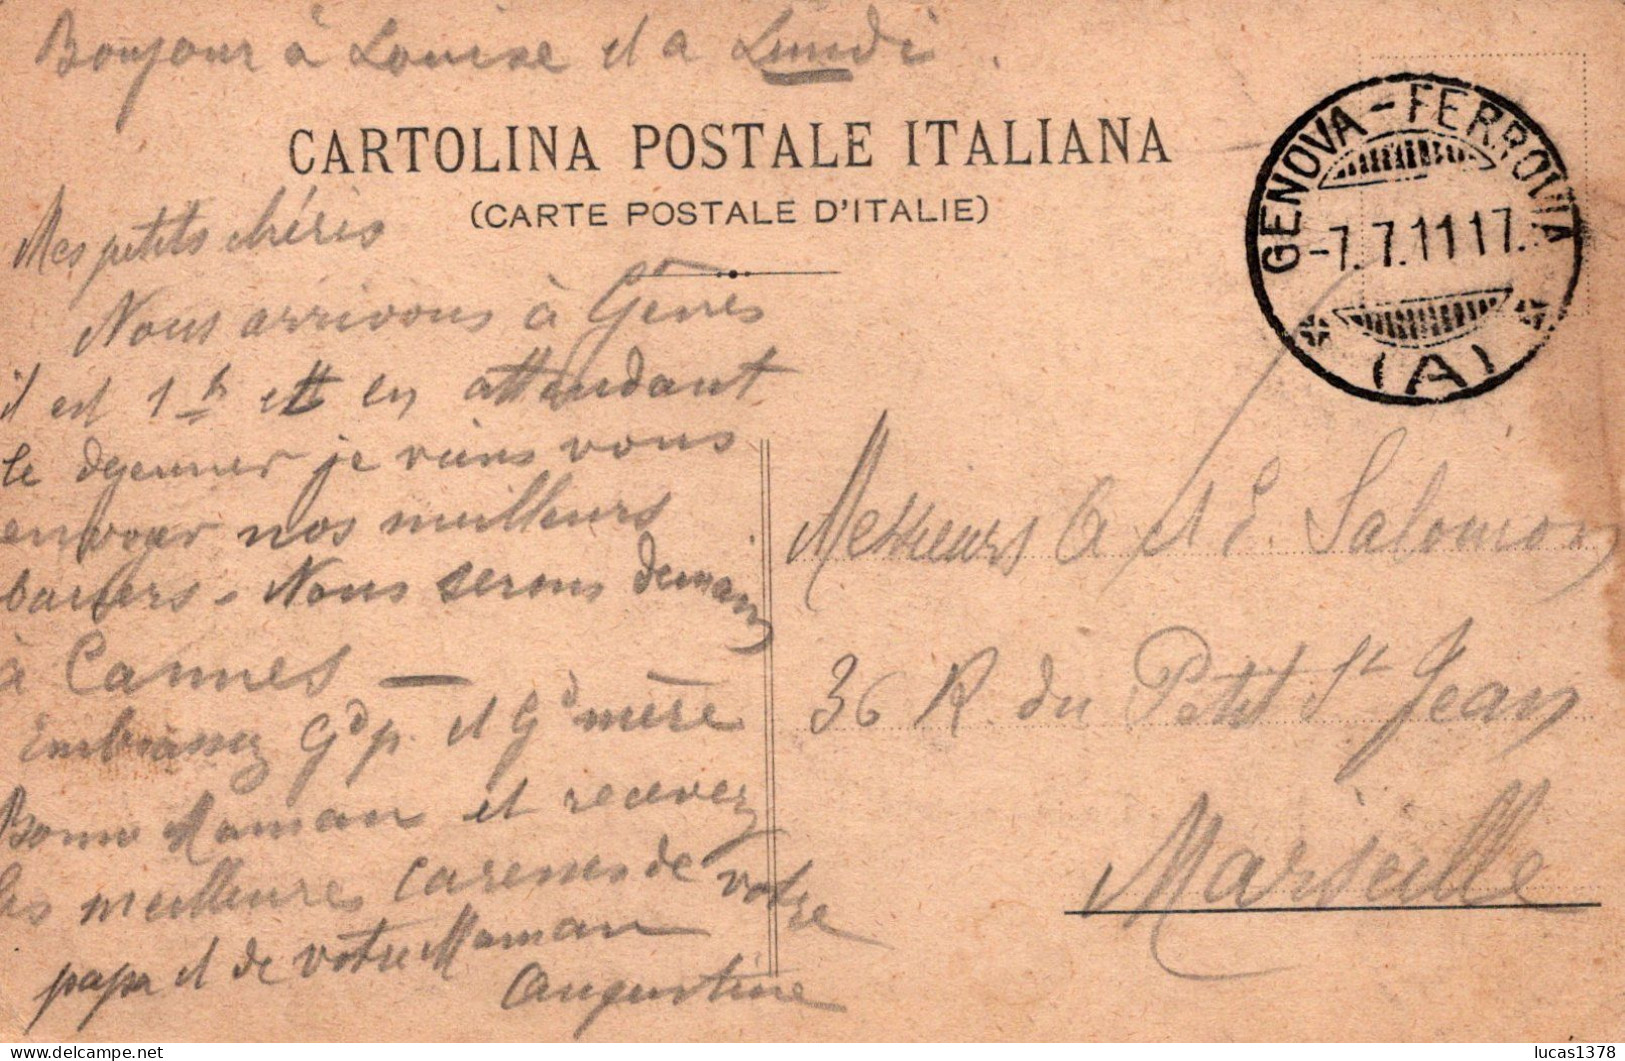 Bonjour à Louise et a Lundi.
CARTOLINA POSTALE ITALIANA
(CARTE POSTALE D'ITALIE)
GENOVA - FERROVIA
-7. 7. 11 17.
(A)
Mes petits chéris
Nous arrivons à Gênes
il est 1h et en attendant
le dejeuner je viens vous
envoyer nos meilleurs
baisers. Nous serons demain
à Cannes —
Embrassez Gd p. et Gd mère
Bonne Maman et recevez
les meilleures caresses de votre
papa et de votre Maman
Augustine
Messieurs et E. Salomon
36 R. du Petit St Jean
Marseille
lucas1378